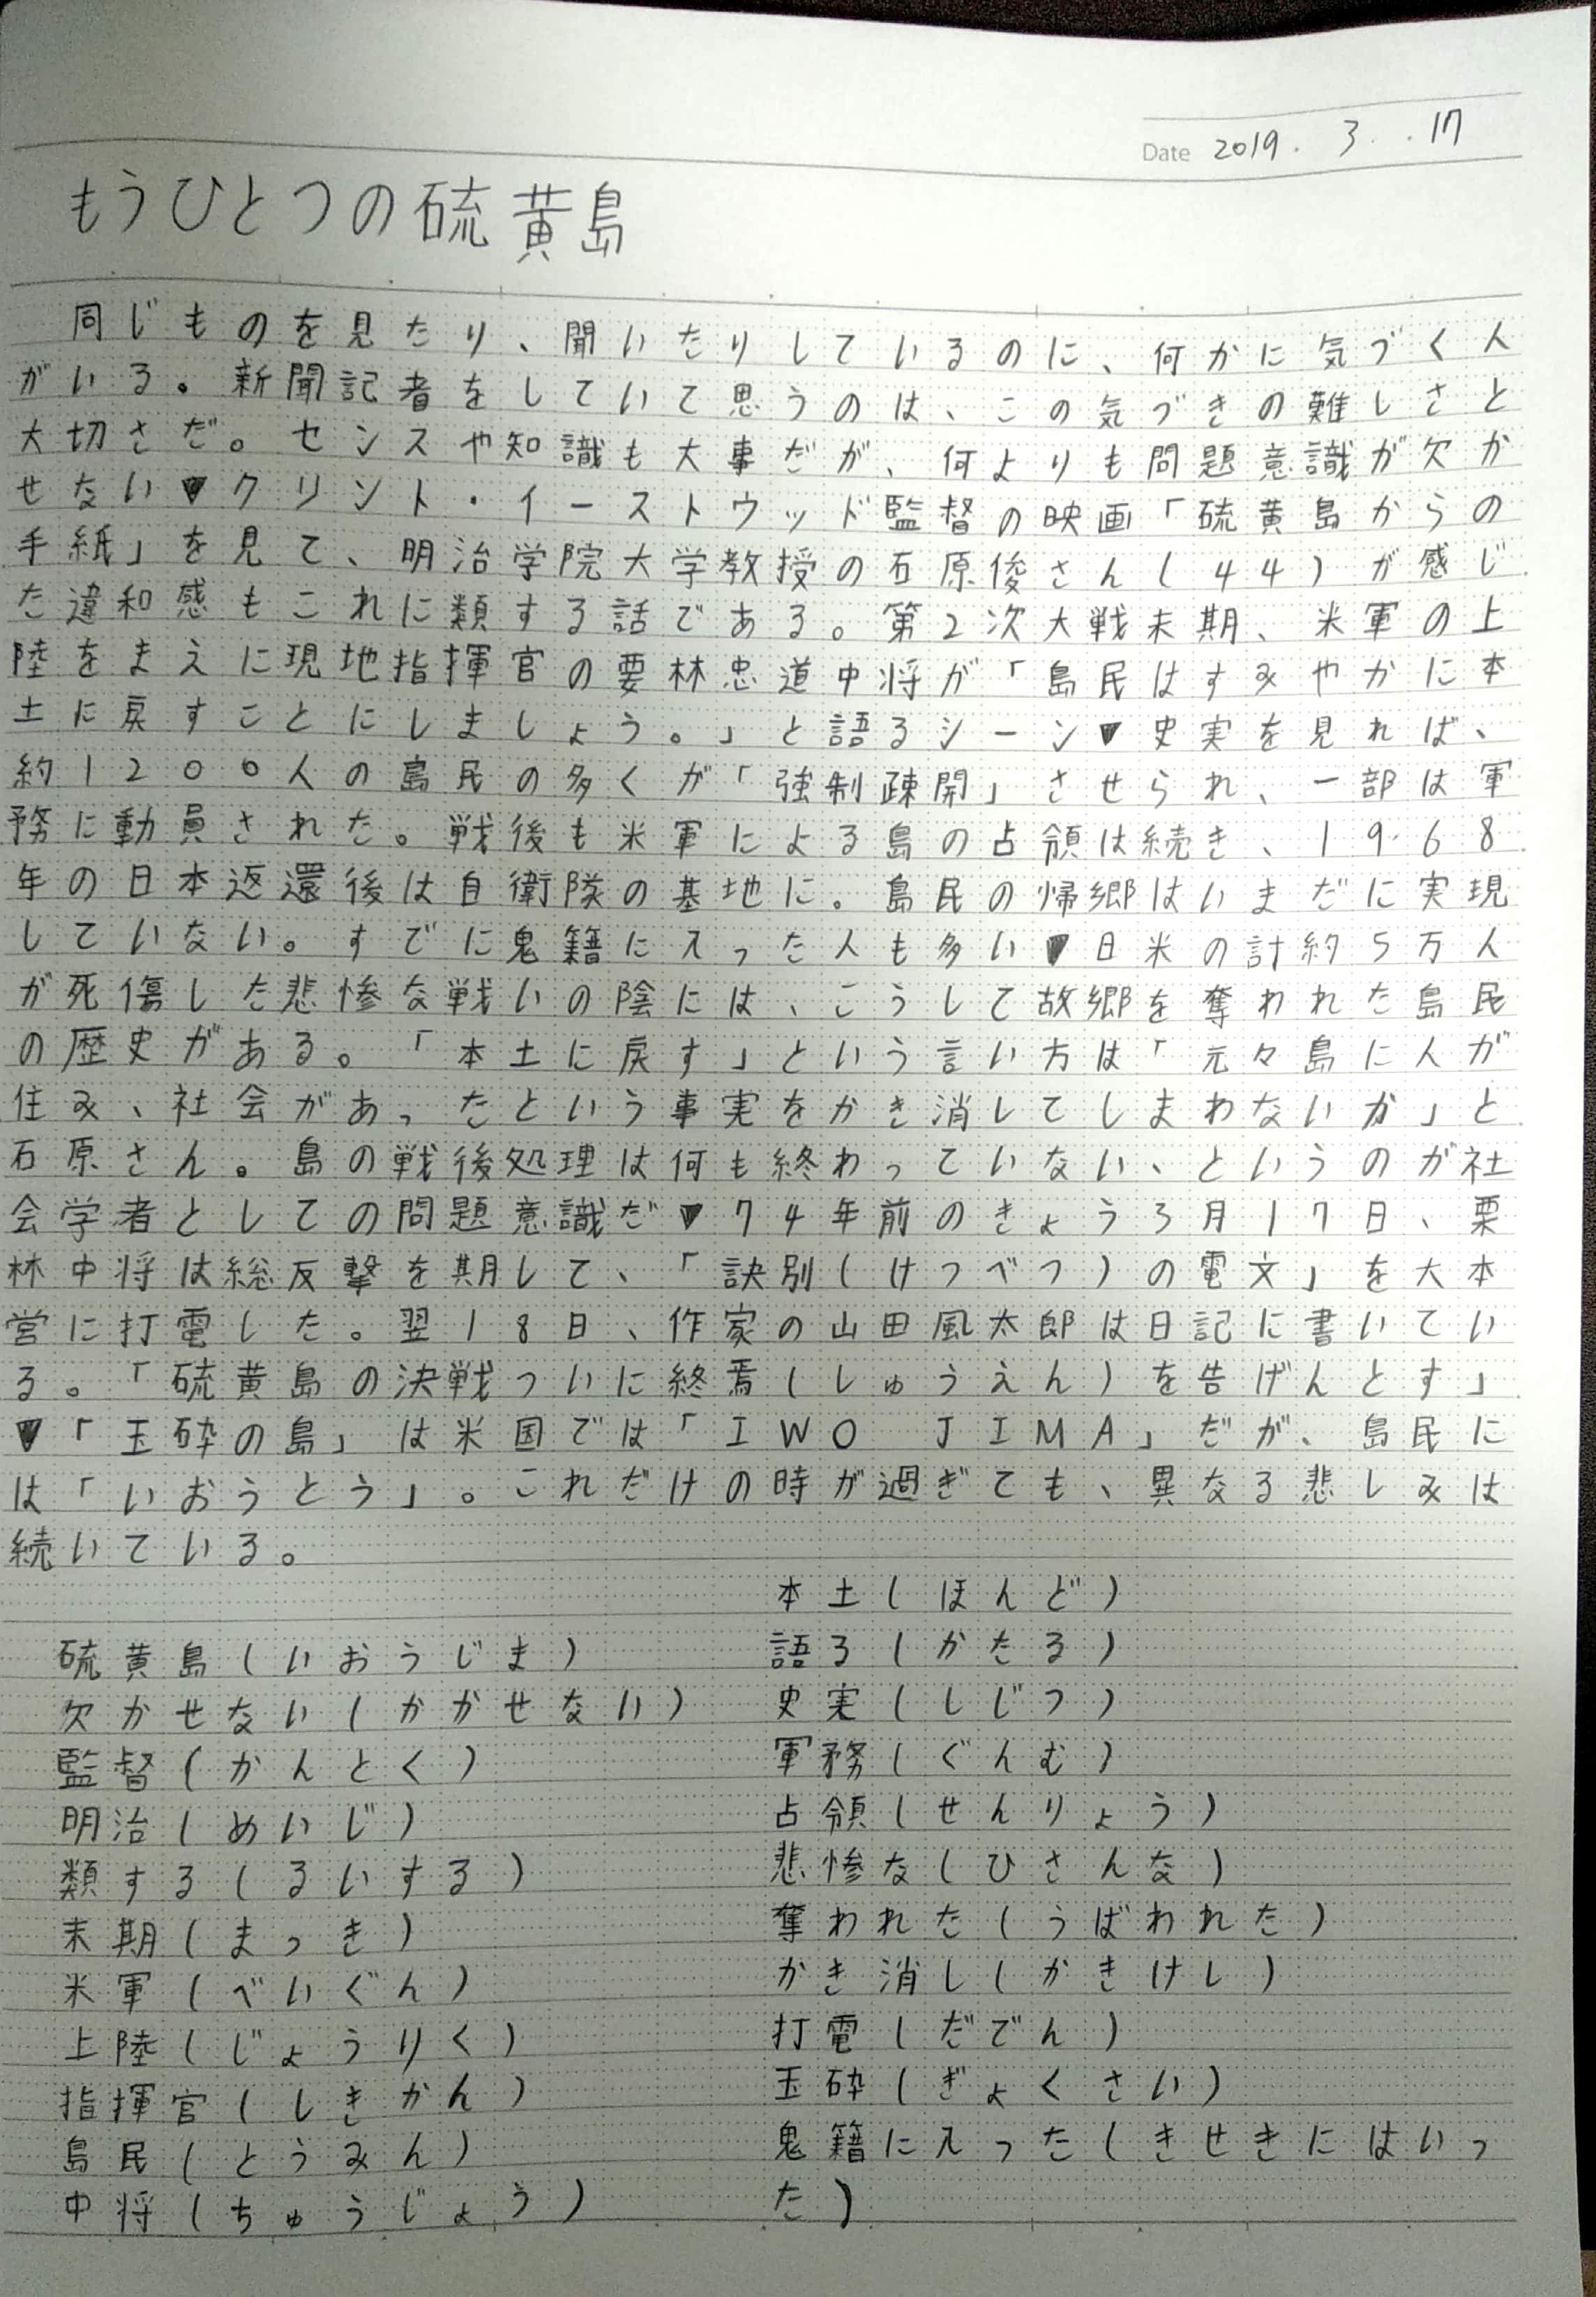 Date 2019. 3. .17
もうひとつの硫黄島
同じものを見たり、聞いたりしているのに、何かに気づく人
がいる。新聞記者をしていて思うのは、この気づきの難しさと
大切さだ。センスや知識も大事だが、何よりも問題意識が欠か
せない▼クリント・イーストウッド監督の映画「硫黄島からの
手紙」を見て、明治学院大学教授の石原俊さん(44)が感じ
た違和感もこれに類する話である。第2次大戦末期、米軍の上
陸をまえに現地指揮官の要林忠道中将が「島民はすみやかに本
土に戻すことにしましょう。」と語るシーン▼史実を見れば、
約1200人の島民の多くが「強制疎開」させられ、一部は軍
務に動員された。戦後も米軍による島の占領は続き、1968
年の日本返還後は自衛隊の基地に。島民の帰郷はいまだに実現
していない。すでに鬼籍に入った人も多い▼日米の計約5万人
が死傷した悲惨な戦いの陰には、こうして故郷を奪われた島民
の歴史がある。「本土に戻す」という言い方は「元々島に人が
住み、社会があったという事実をかき消してしまわないか」と
石原さん。島の戦後処理は何も終わっていない、というのが社
会学者としての問題意識だ▼74年前のきょう3月17日、栗
林中将は総反撃を期して、「訣別(けつべつ)の電文」を大本
営に打電した。翌18日、作家の山田風太郎は日記に書いてい
る。「硫黄島の決戦ついに終焉(しゅうえん)を告げんとす」
▼「玉砕の島」は米国では「IWO JIMA」だが、島民に
は「いおうとう」。これだけの時が過ぎても、異なる悲しみは
続いている。
硫黄島(いおうじま)
欠かせない(かかせない)
監督(かんとく)
明治(めいじ)
類する(るいする)
末期(まっき)
米軍(べいぐん)
上陸(じょうりく)
指揮官(しきかん)
島民(とうみん)
中将(ちゅうじょう)
本土(ほんど)
語る(かたる)
史実(しじつ)
軍務(ぐんむ)
占領(せんりょう)
悲惨な(ひさんな)
奪われた(うばわれた)
かき消し(かきけし)
打電(だでん)
玉砕(ぎょくさい)
鬼籍に入った(きせきにはいっ
た)